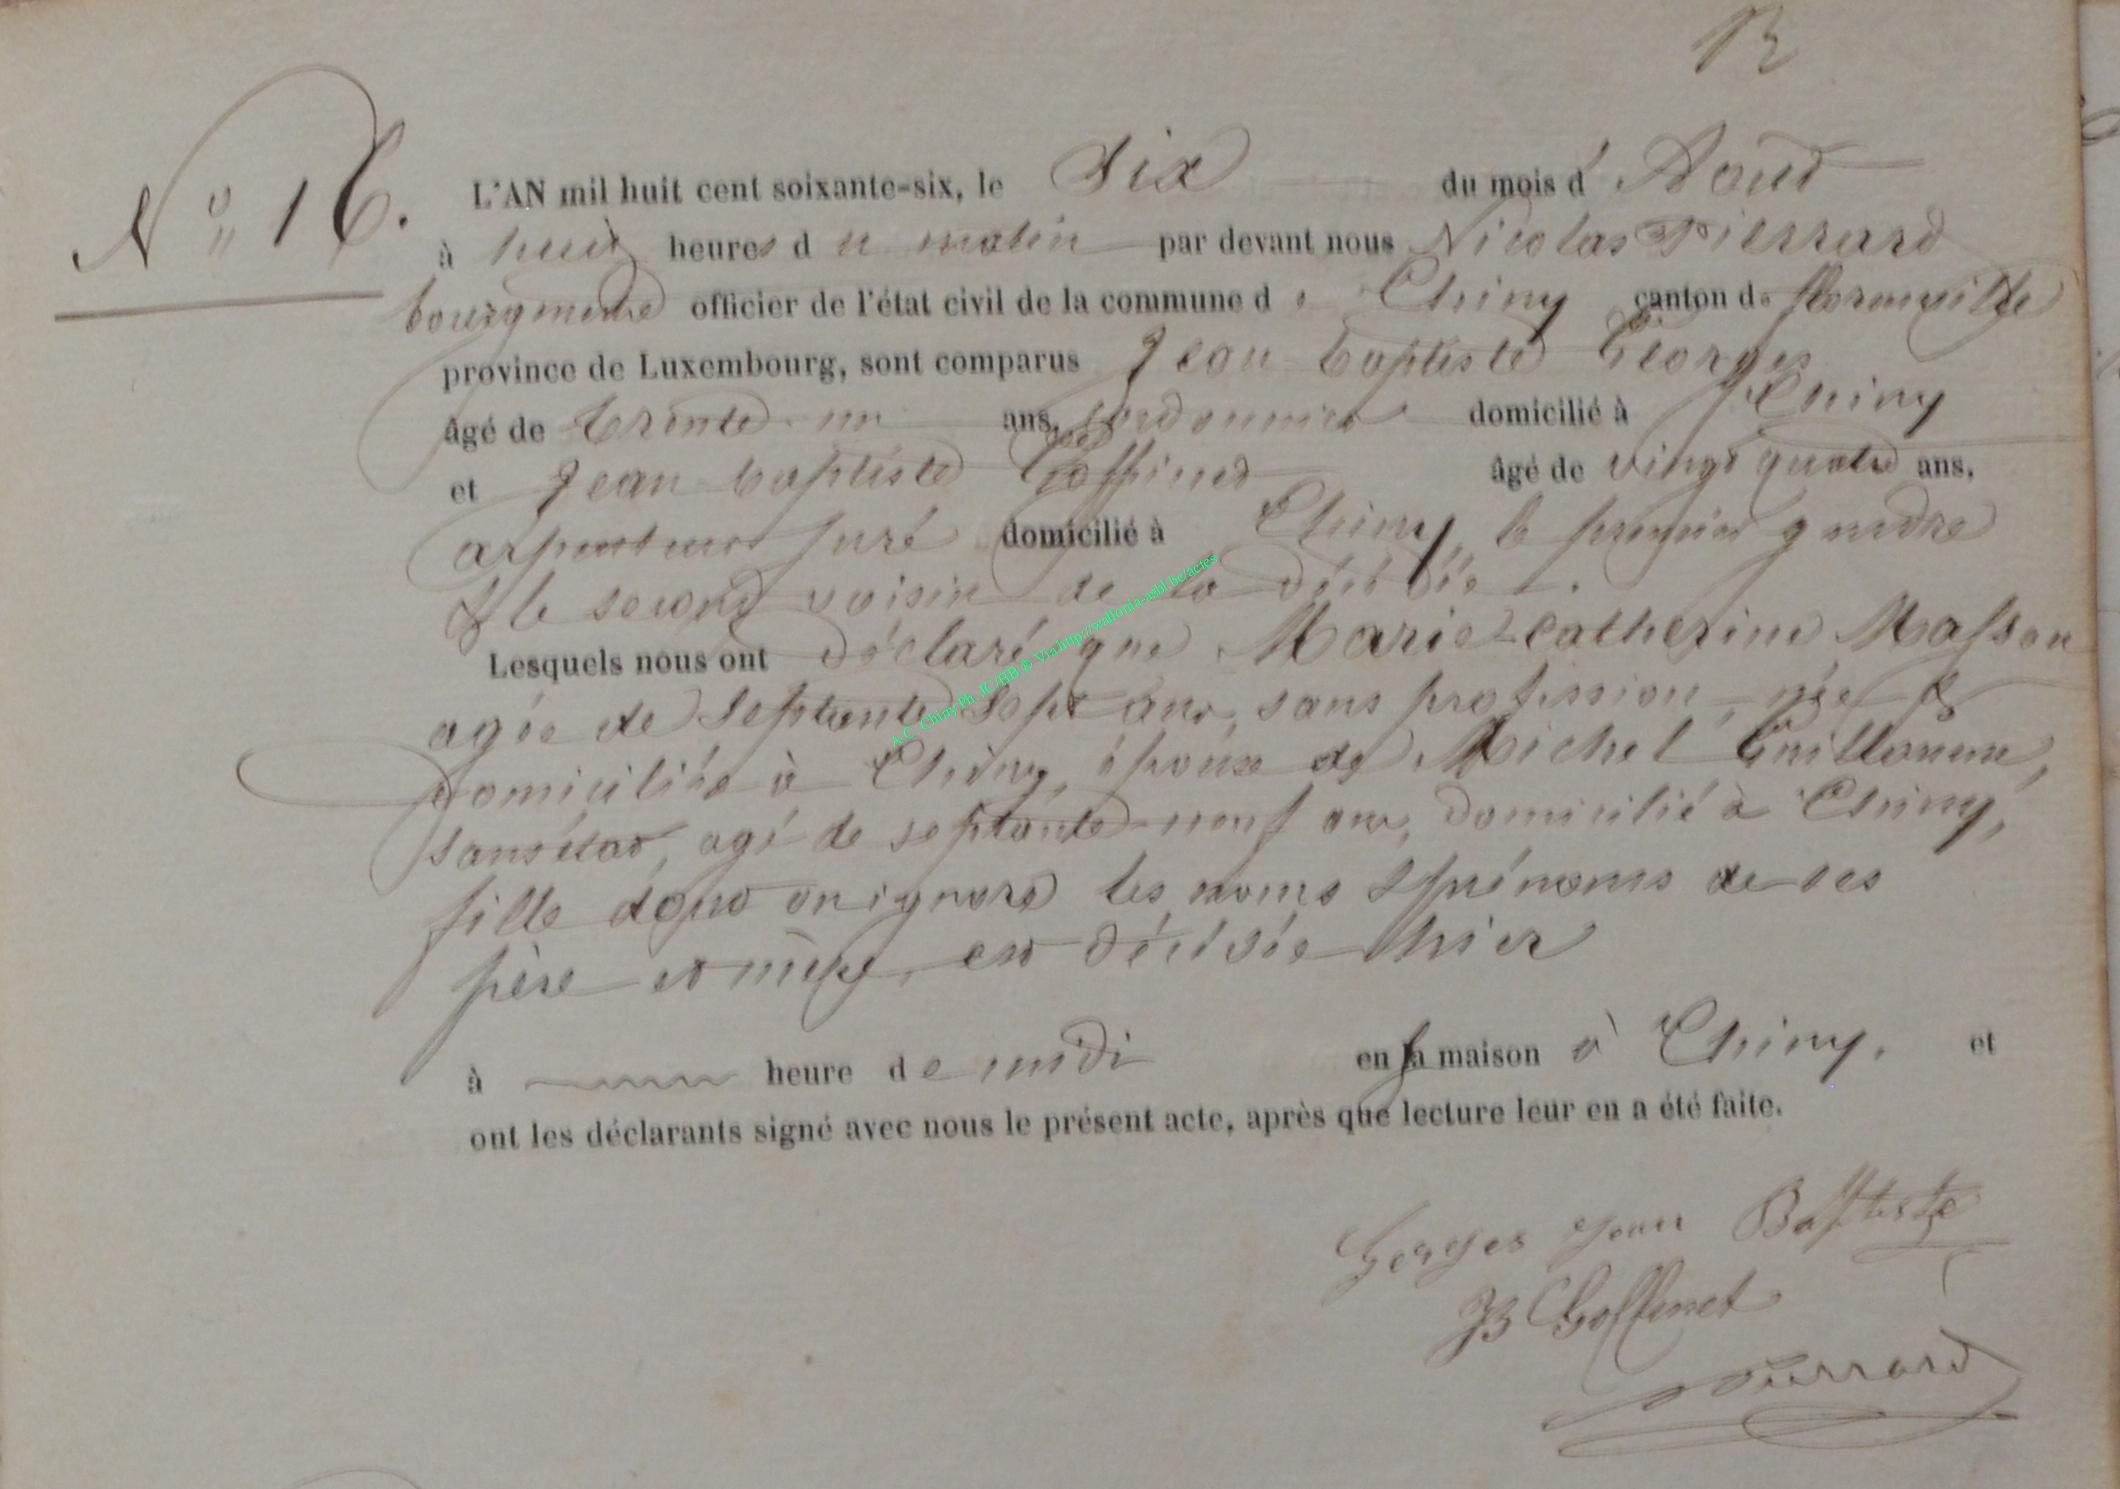 12
N° 16.
L'AN mil huit cent soixante-six, le six du mois d'Aout
à huit heures du matin par devant nous Nicolas Pierrard
bourgmestre officier de l'état civil de la commune de Chiny canton de florenville
province de Luxembourg, sont comparus Jean baptiste Georges
âgé de trente-un ans, cordonnier domicilié à Chiny
et Jean baptiste Goffinet âgé de vingt quatre ans,
arpenteur juré domicilié à Chiny, le premier gendre
& le second voisin de la décédée.
Lesquels nous ont déclaré que Marie-Catherine Masson
agée de septante sept ans, sans profession, née &
domiciliée à Chiny, épouse de Michel Guillaume,
sans état, agé de septante-neuf ans, domicilié à Chiny,
fille dont on ignore les noms & prénoms de ses
père et mère, est décédée hier
à heure de midi en sa maison à Chiny, et
ont les déclarants signé avec nous le présent acte, après que lecture leur en a été faite.
Georges Jean Baptiste
JB Goffinet
Pierrard
A.C. Chiny Ph. JC/HH & Via http://wallonia-asbl.be/actes